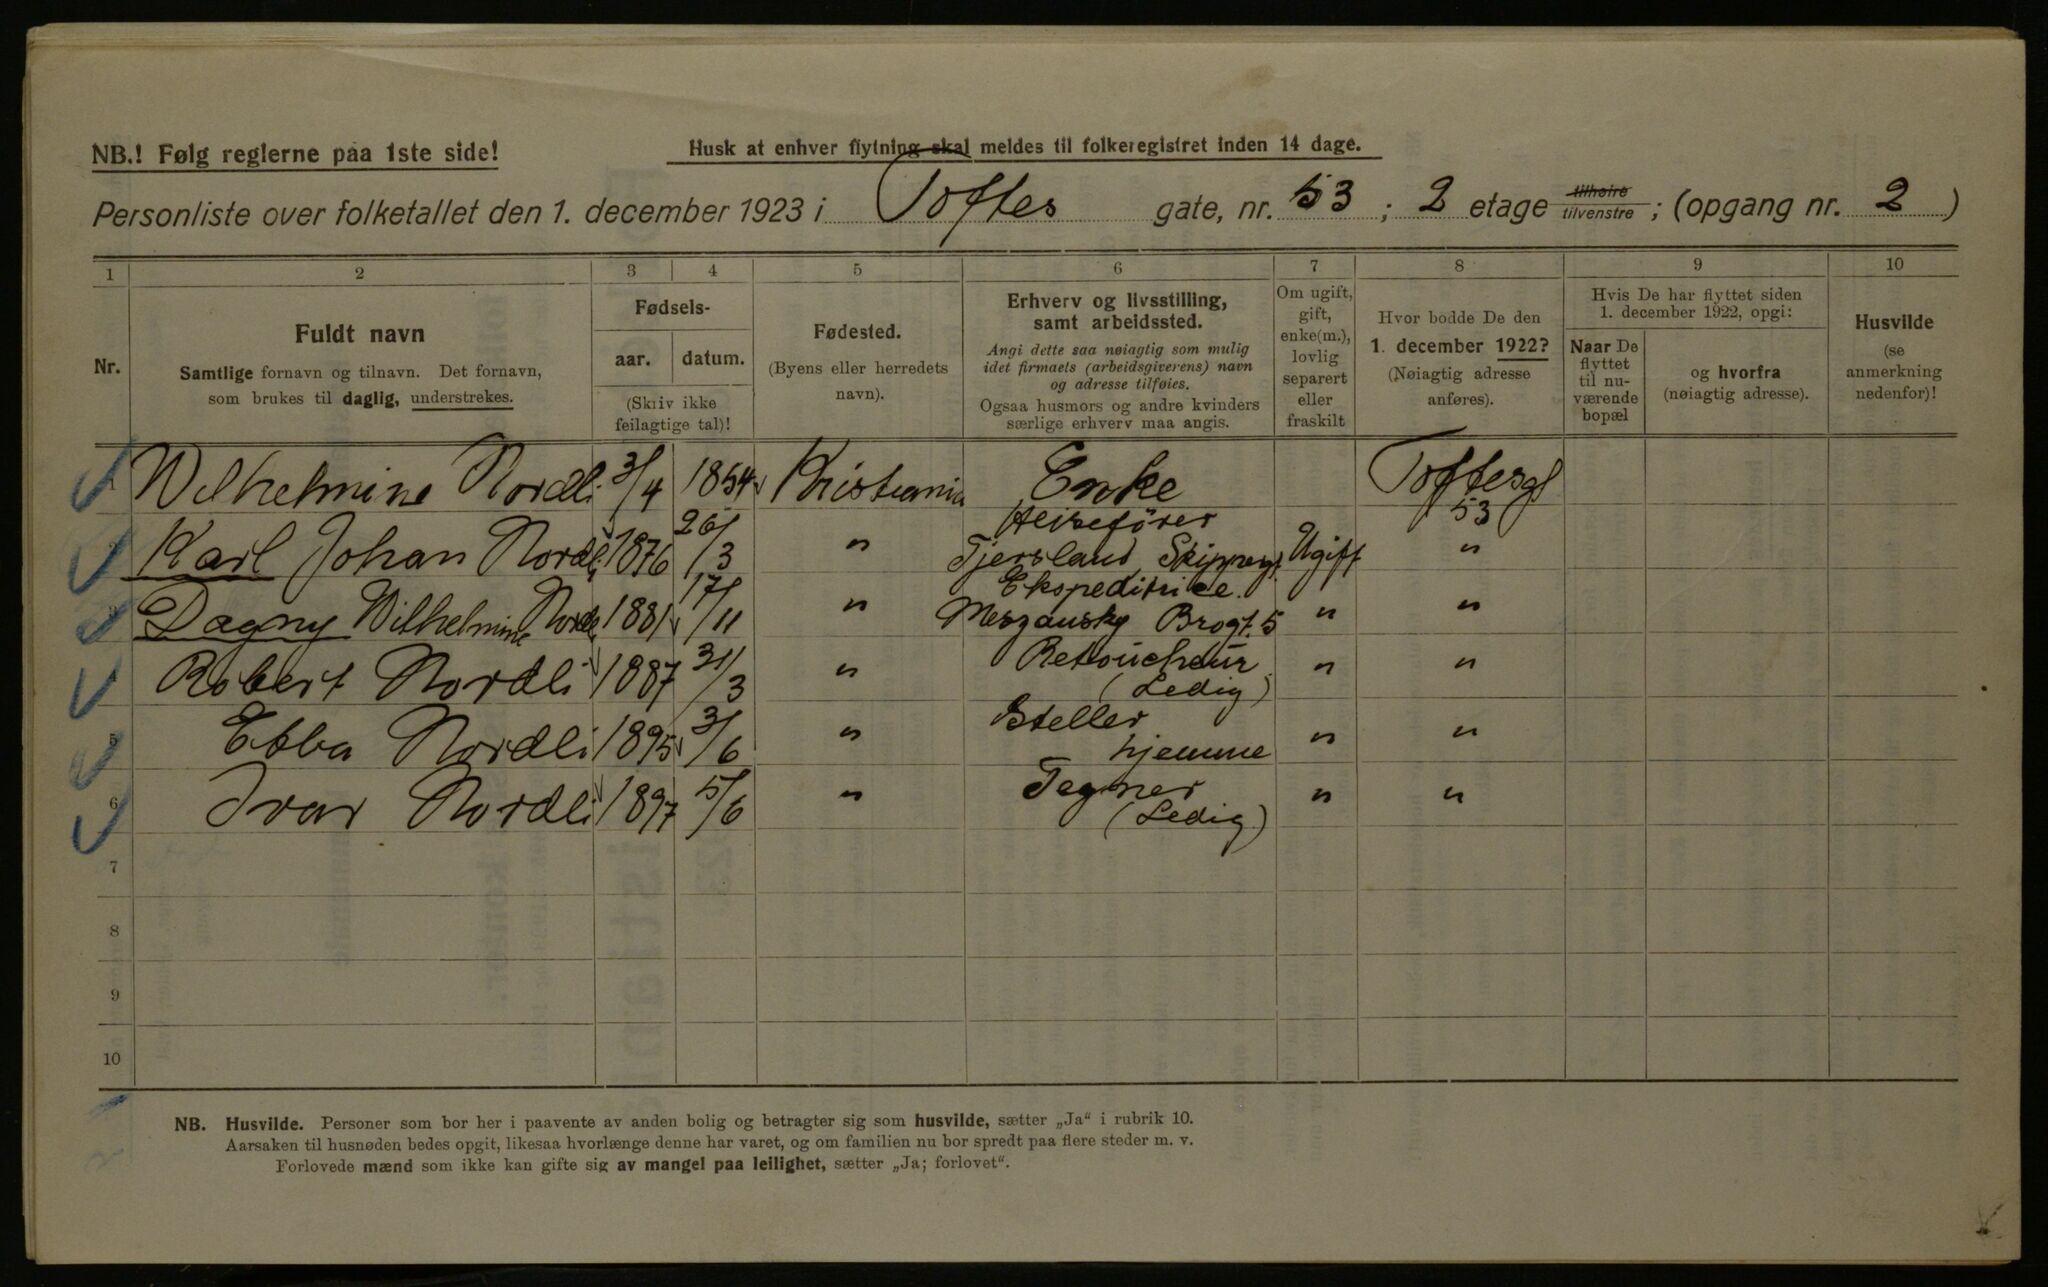 NB.! Følg reglerne paa 1ste side!
Husk at enhver flytning skal meldes til folkeregistret inden 14 dage.
Personliste over folketallet den 1. december 1923 i Toftes gate, nr. 53; 2 etage tilhøire tilvenstre; (opgang nr. 2)
1 2 3 4 5 6 7 8 9 10
Nr.
Fuldt navn
Samtlige fornavn og tilnavn. Det fornavn,
som brukes til daglig, understrekes.
Fødsels-
aar. datum.
(Skriv ikke
feilagtige tal)!
Fødested.
(Byens eller herredets
navn).
Erhverv og livsstilling,
samt arbeidssted.
Angi dette saa nøiagtig som mulig
idet firmaets (arbeidsgiverens) navn
og adresse tilføies.
Ogsaa husmors og andre kvinders
særlige erhverv maa angis.
Om ugift,
gift,
enke(m.),
lovlig
separert
eller
fraskilt
Hvor bodde De den
1. december 1922?
(Nøiagtig adresse
anføres).
Hvis De har flyttet siden
1. december 1922, opgi:
Naar De
flyttet
til nu-
værende
bopæl
og hvorfra
(nøiagtig adresse).
Husvilde
(se
anmerkning
nedenfor)!
1 Wilhelmine Nordli 3/4 1854 Kristiania Enke Toftesgt 53
2 Karl Johan Nordli 1876 26/3 " Heisefører
Fjersland Skippergt. Ugift "
3 Dagny Wilhelmine Nordli 1881 17/11 " Ekspeditrice.
Brogt. 5 " "
4 Robert Nordli 1887 31/3 " Retouchür
(Ledig) " "
5 Ebba Nordli 1895 3/6 " Steller
hjemme " "
6 Ivar Nordli 1897 5/6 " Tegner
(Ledig) " "
7
8
9
10
NB. Husvilde. Personer som bor her i paavente av anden bolig og betragter sig som husvilde, sætter „Ja" i rubrik 10.
Aarsaken til husnøden bedes opgit, likesaa hvorlænge denne har varet, og om familien nu bor spredt paa flere steder m. v.
Forlovede mænd som ikke kan gifte sig av mangel paa leilighet, sætter „Ja; forlovet".